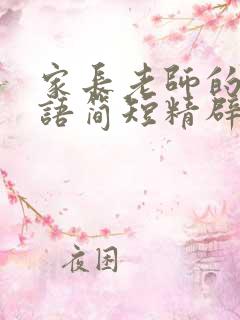 家長老師的
語簡短精辟
夜困